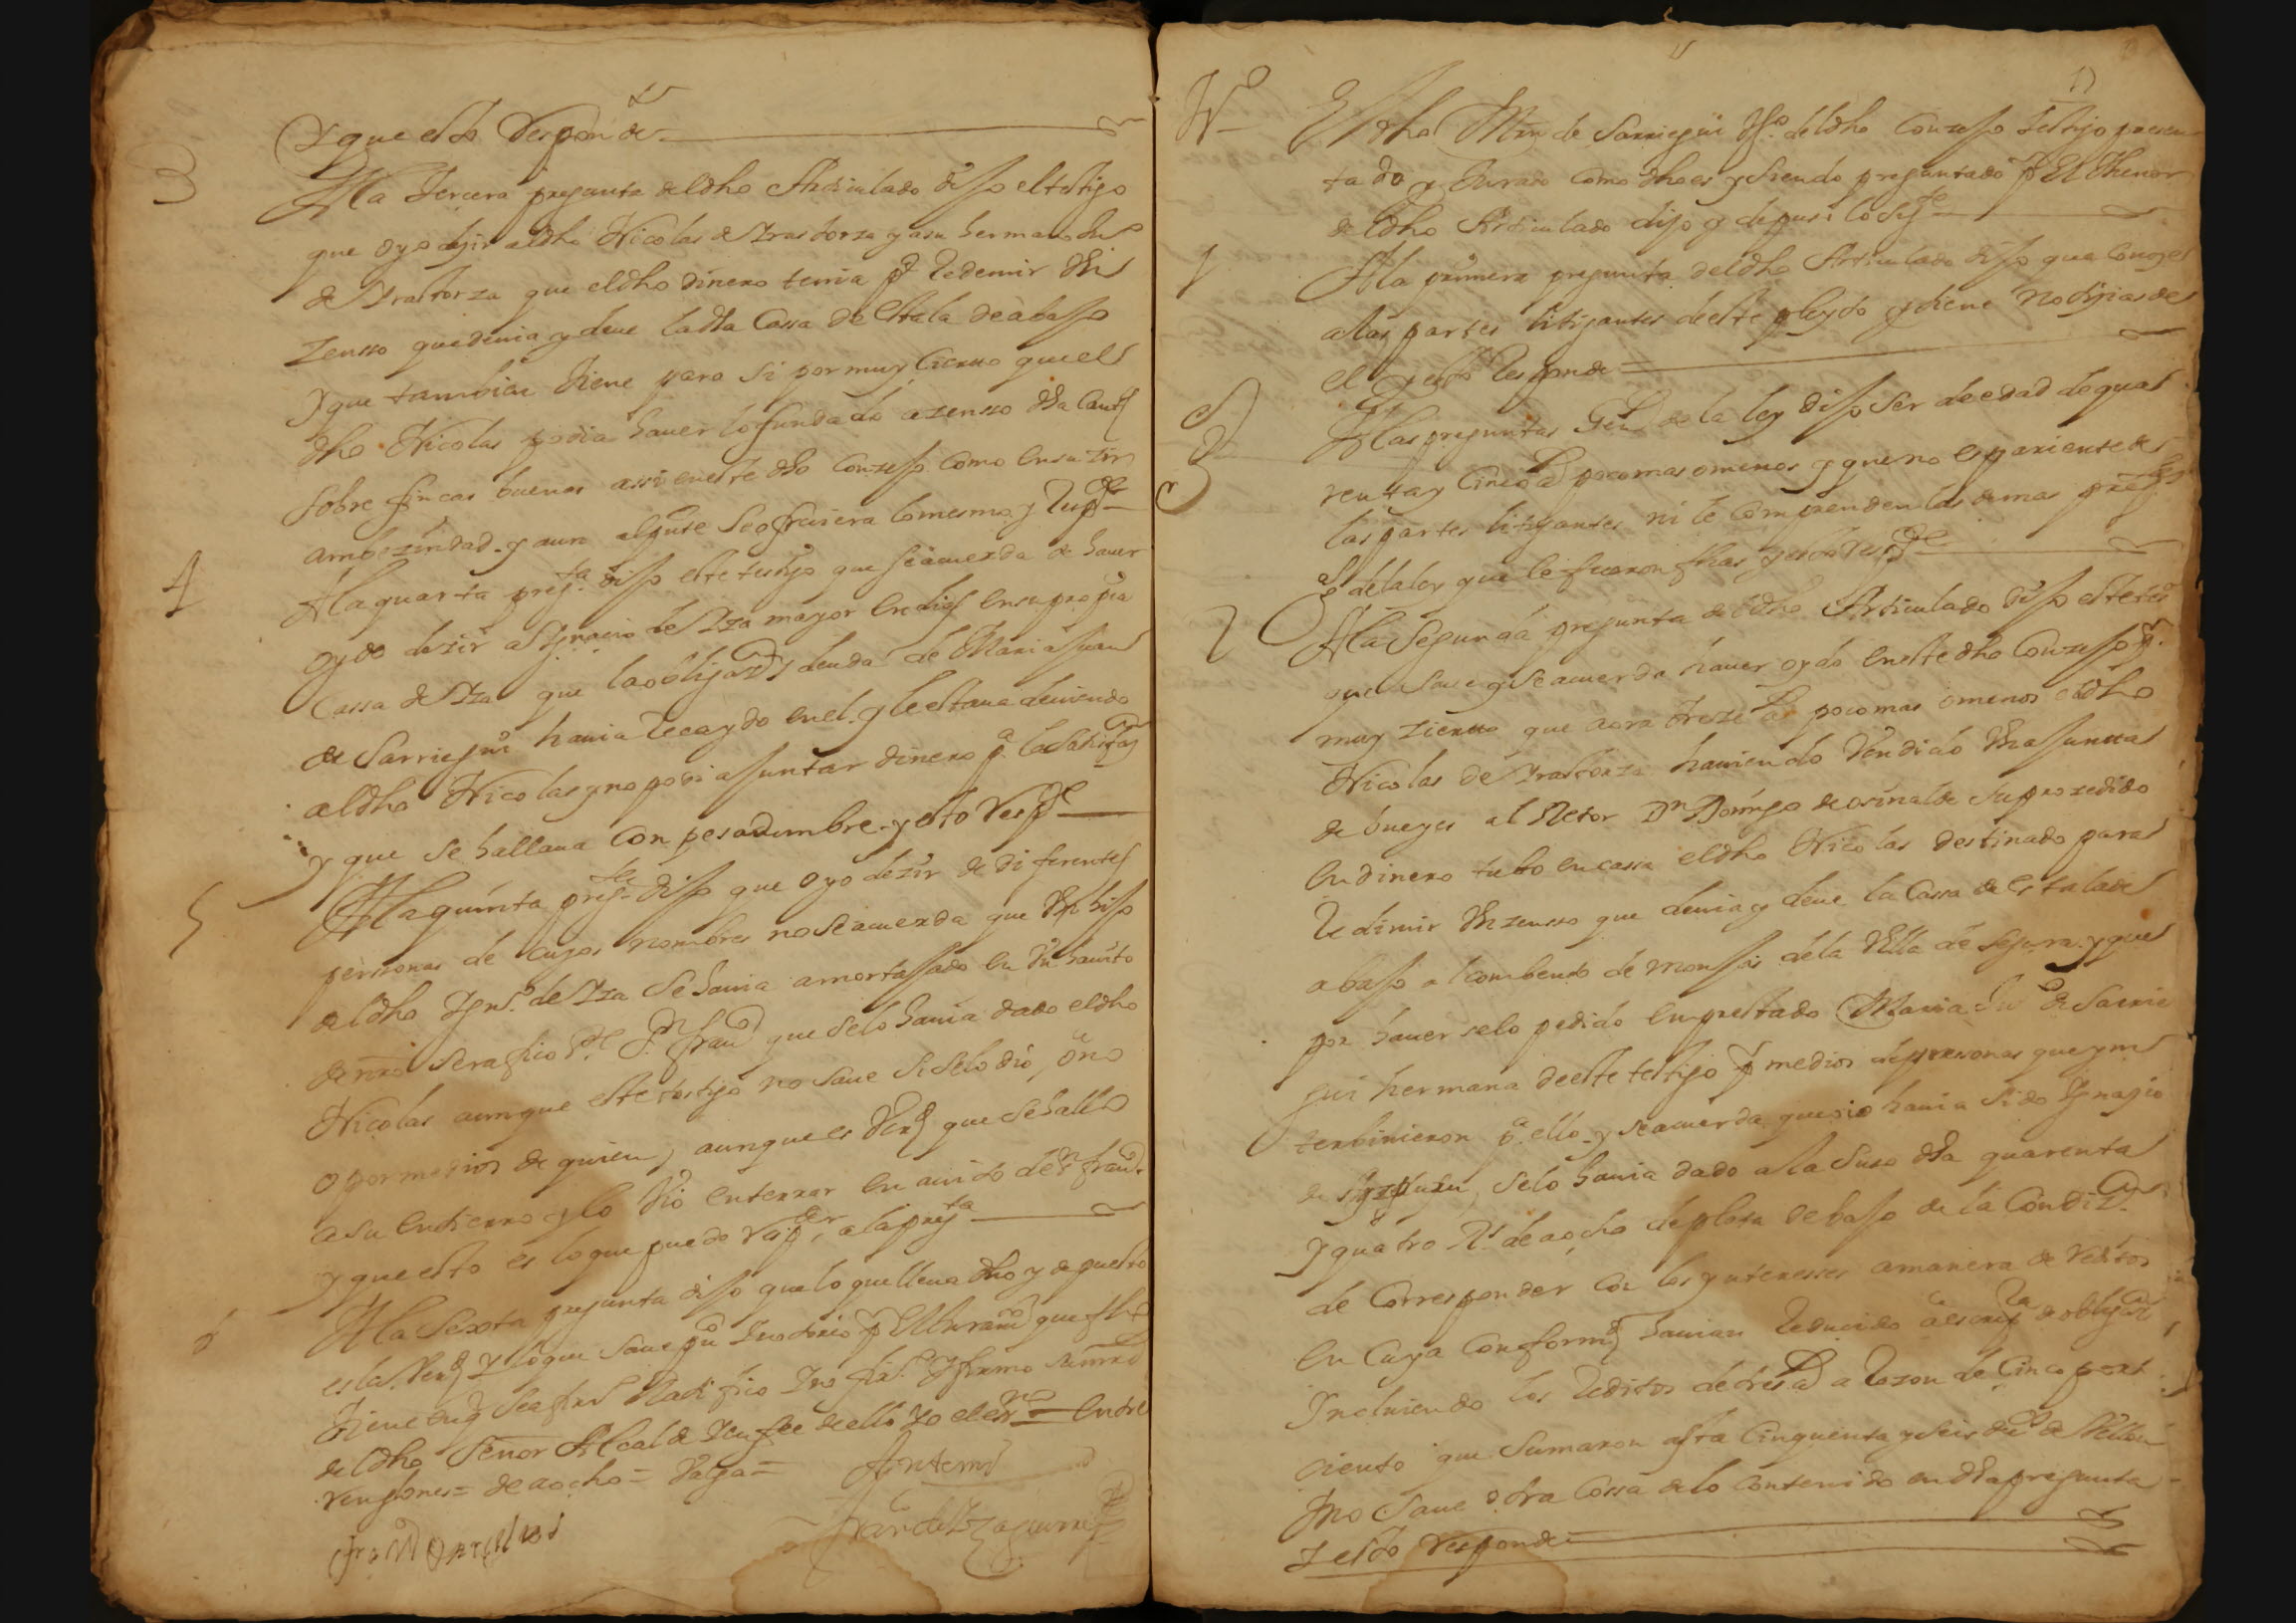 Y que esto Responde
3 A la Tercera pregunta del dho Articulado dijo el testigo
que oyo dezir al dho Nicolas de Yrastorza y a su hermano
de Yrastorza que el dho dinero tenia pª Redemir Vn
Zensso que devia y deve la dha Cassa de Estala de abajo
Y que tambien tiene para si por muy cierto que el
dho Nicolas podia haver lo fundado a zensso dha cantd
sobre fincas buenas assi en este dho Conzejo como en su
y aun el que se ofreciera lo mesmo y Respde
4 A la quarta pregta dijo este testigo que se acuerda de haver
oydo dezir a Ygnacio de Yza mayor en dias en su propia
Cassa de Yza que la obligazon y deuda de Maria Juan
de Sarriegui havia Recaydo en el y le estava deviendo
al dho Nicolas y no podia juntar dinero pª la satisfazon
y que se hallava con pesadumbre y esto Respde
5 A la quinta pregta dijo que oyo dezir de diferentes
perssonas de cuyos nombres no se acuerda que
del dho Ygnº de Yza se havia amortajado en Vn havito
de nro Serafico Pe Sn Franco que se lo havia dado el dho
Nicolas aunque este testigo no save si se lo dio, o no
o por medios de quien, aunque es Verd que se hallo
a su entierro y lo Vio enterrar en avito de Sn Franco
y que esto es lo que puede Respder a la pregta
6 A la Sexta pregunta dijo que lo que lleva dho y depuesto
es la Verd y lo que save puco y notorio pr el Juramto que fho
tiene en que se afirmo Ratifico y no firmo
del dho Señor Alcalde y en fee de ello yo el essno = entre
Renglones = de a ocho = Valga = Ante mi

Wo El dho Mrn de Sarriegui Vº del dho Conzejo testigo presen
tado y Jurado como dho es y siendo preguntado pr el thenor
del dho Articulado dijo y depuso lo sigte
1 A la primera pregunta del dho Articulado dijo que conoze
a las partes litigantes de este pleyto y tiene notizias de
el y esto Responde
A las preguntas Gens de la ley dijo ser de edad de qua
renta y Cinco as poco mas o menos y que no es pariente de
las partes litigantes ni le comprenden las demas pregtas
Gs de la ley que le fueron fhas y esto Respde
2 A la Segunda pregunta del dho Articulado dijo este testº
que save y se acuerda haver oydo en este dho Conzejo pr
muy zierto que aora treze as poco mas o menos el dho
Nicolas de Yrastorza haviendo Vendido Vna junta
de bueyes al Retor Dn Domingo de osinalde su prozedido
en dinero tubo en cassa el dho Nicolas destinado para
Redimir Vn zensso que devia y deve la Cassa de Estala de
abajo al combento de monjas de la Villa de Segura y que
por haver selo pedido en prestado Maria Juº de Sarrie
gui hermana de este testigo pr medios de perssonas que yn
terbinieron pª ello y se acuerda que havia sido Ygnazio
de se lo havia dado a la suso dha quarenta
y quatro Rs de a ocho de plata debajo de la Condizon
de Corresponder con los yntereses a manera de Reditos
en Cuya Conformd havian Reducido a escripra de obligazon
Yncluiendo los Reditos de tres as a Razon de Cinco por
ciento que sumaron asta Cinquenta y seis dus de Vellon
Y no save otra Cossa de lo contenido en dha pregunta
Y esto Responde